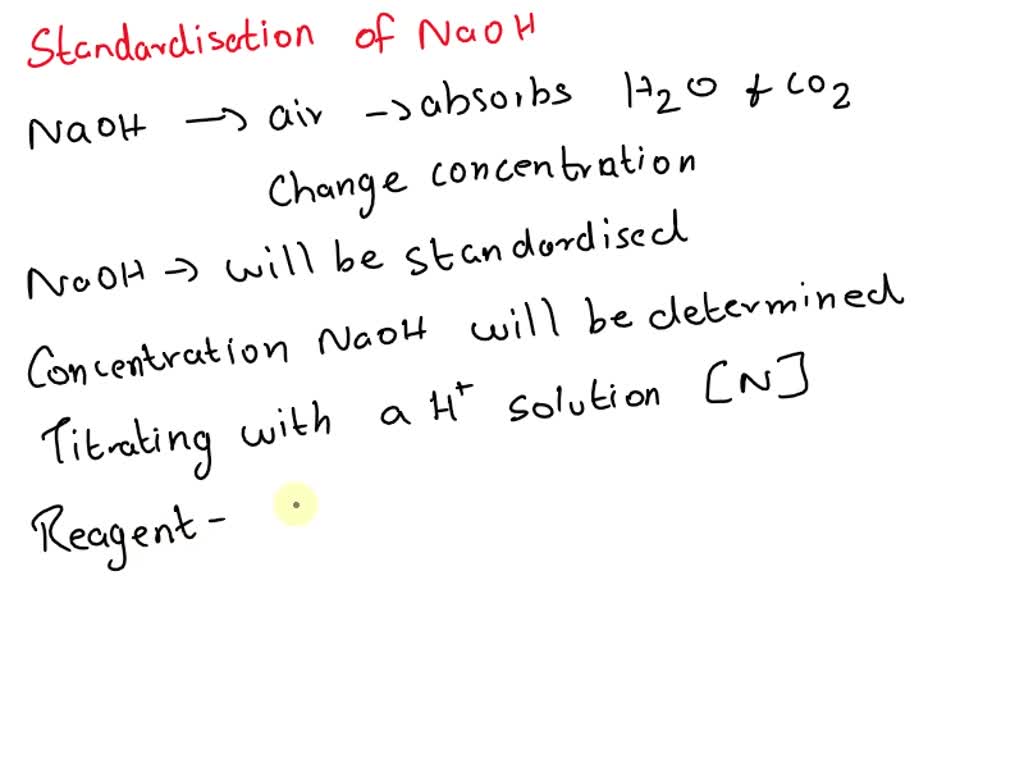 Standardisation of NaOH
NaOH → air → absorbs H₂O + CO₂
Change concentration
NaOH → will be standardised
Concentration NaOH will be determined
Titrating with a H⁺ solution [N]
Reagent -